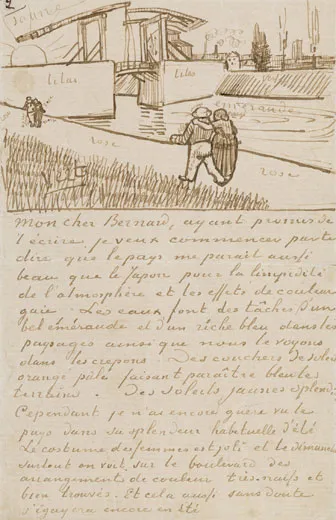 2
Jaune
lilas
lilas
emeraude
rose
rose
Vert
Mon cher Bernard, ayant promis de
t'écrire je veux commencer par te
dire que le pays me parait aussi
beau que le Japon pour la limpidité
de l'atmosphère et les effets de couleur
gaie. Les eaux font des tâches d'un
bel éméraude et d'un riche bleu dans les
paysages ainsi que nous le voyons
dans les crepons. Des couchers de soleil
orangé pâle faisant paraître bleus les
terrains. Des soleils jaunes splendides.
Cependant je n'ai encore guère vu le
pays dans sa splendeur habituelle d'été
Le costume des femmes est joli et le dimanche
surtout on voit sur le boulevard des
arrangements de couleur très naifs et
bien trouvés. Et cela aussi sans doute
s'égayera encore en été